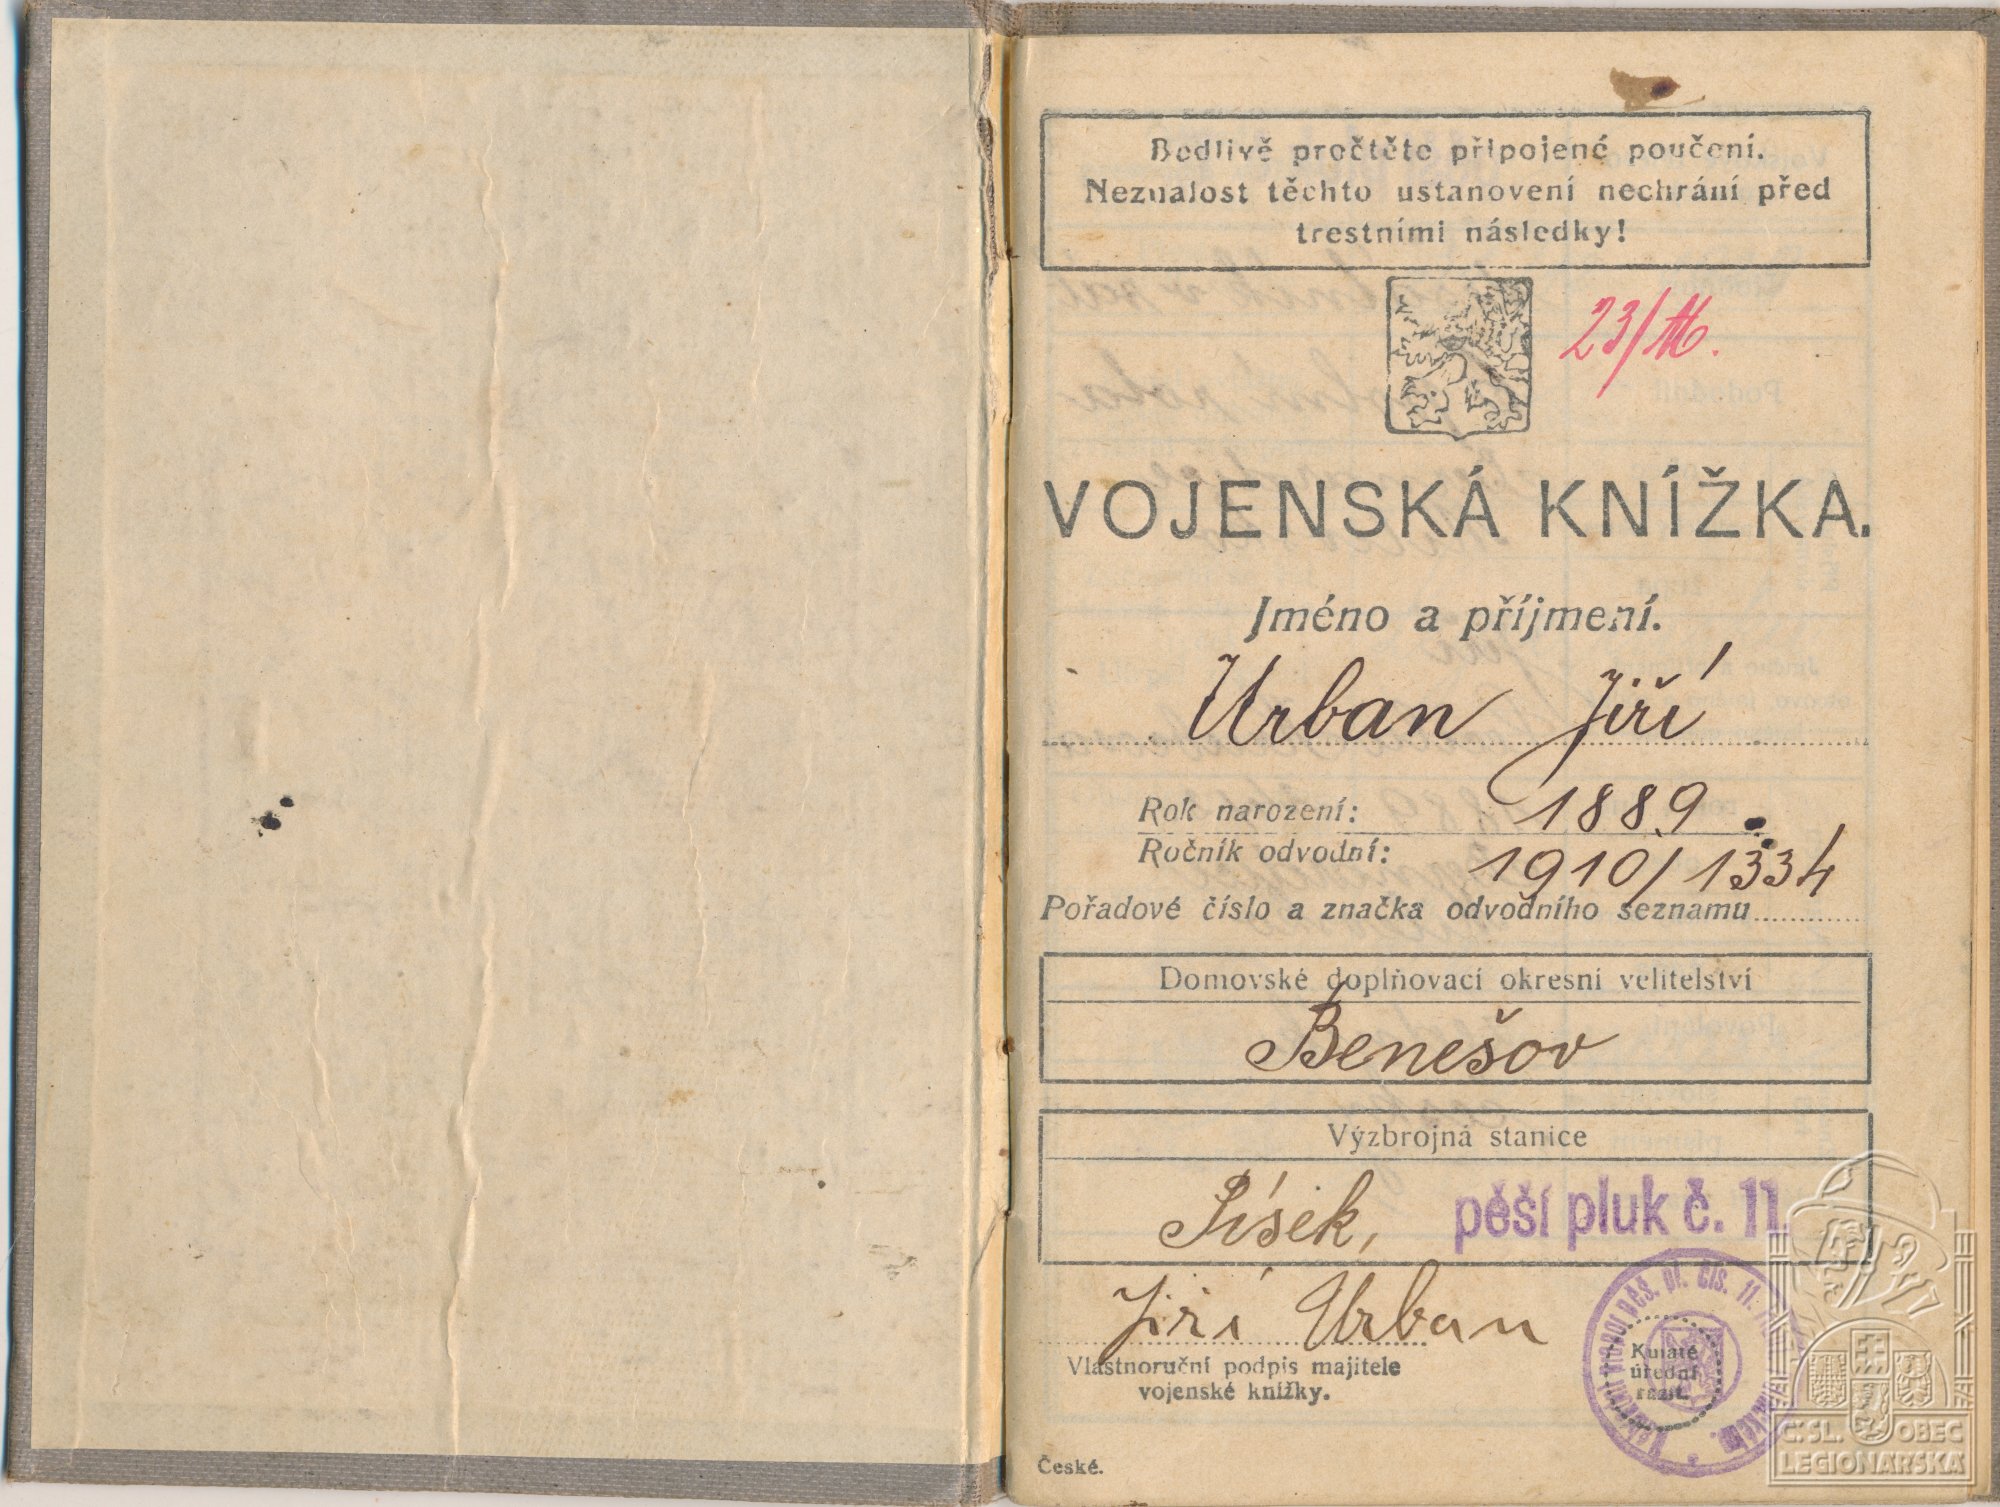 Bedlivě pročtěte připojené poučení.
Neznalost těchto ustanovení nechrání před
trestními následky!
VOJENSKÁ KNÍŽKA.
Jméno a příjmení.
Urban Jiří
Rok narození: 1889.
Ročník odvodní: 1910/1334
Pořadové číslo a značka odvodního seznamu
Domovské doplňovací okresní velitelství
Benešov
Výzbrojná stanice
Písek, pěší pluk č. 11
Jiří Urban
Vlastnoruční podpis majitele
vojenské knížky.
pěš. pl. čís. 11.
Kulaté
úřední
razít.
České.
Č. SL. OBEC
LEGIONÁŘSKÁ